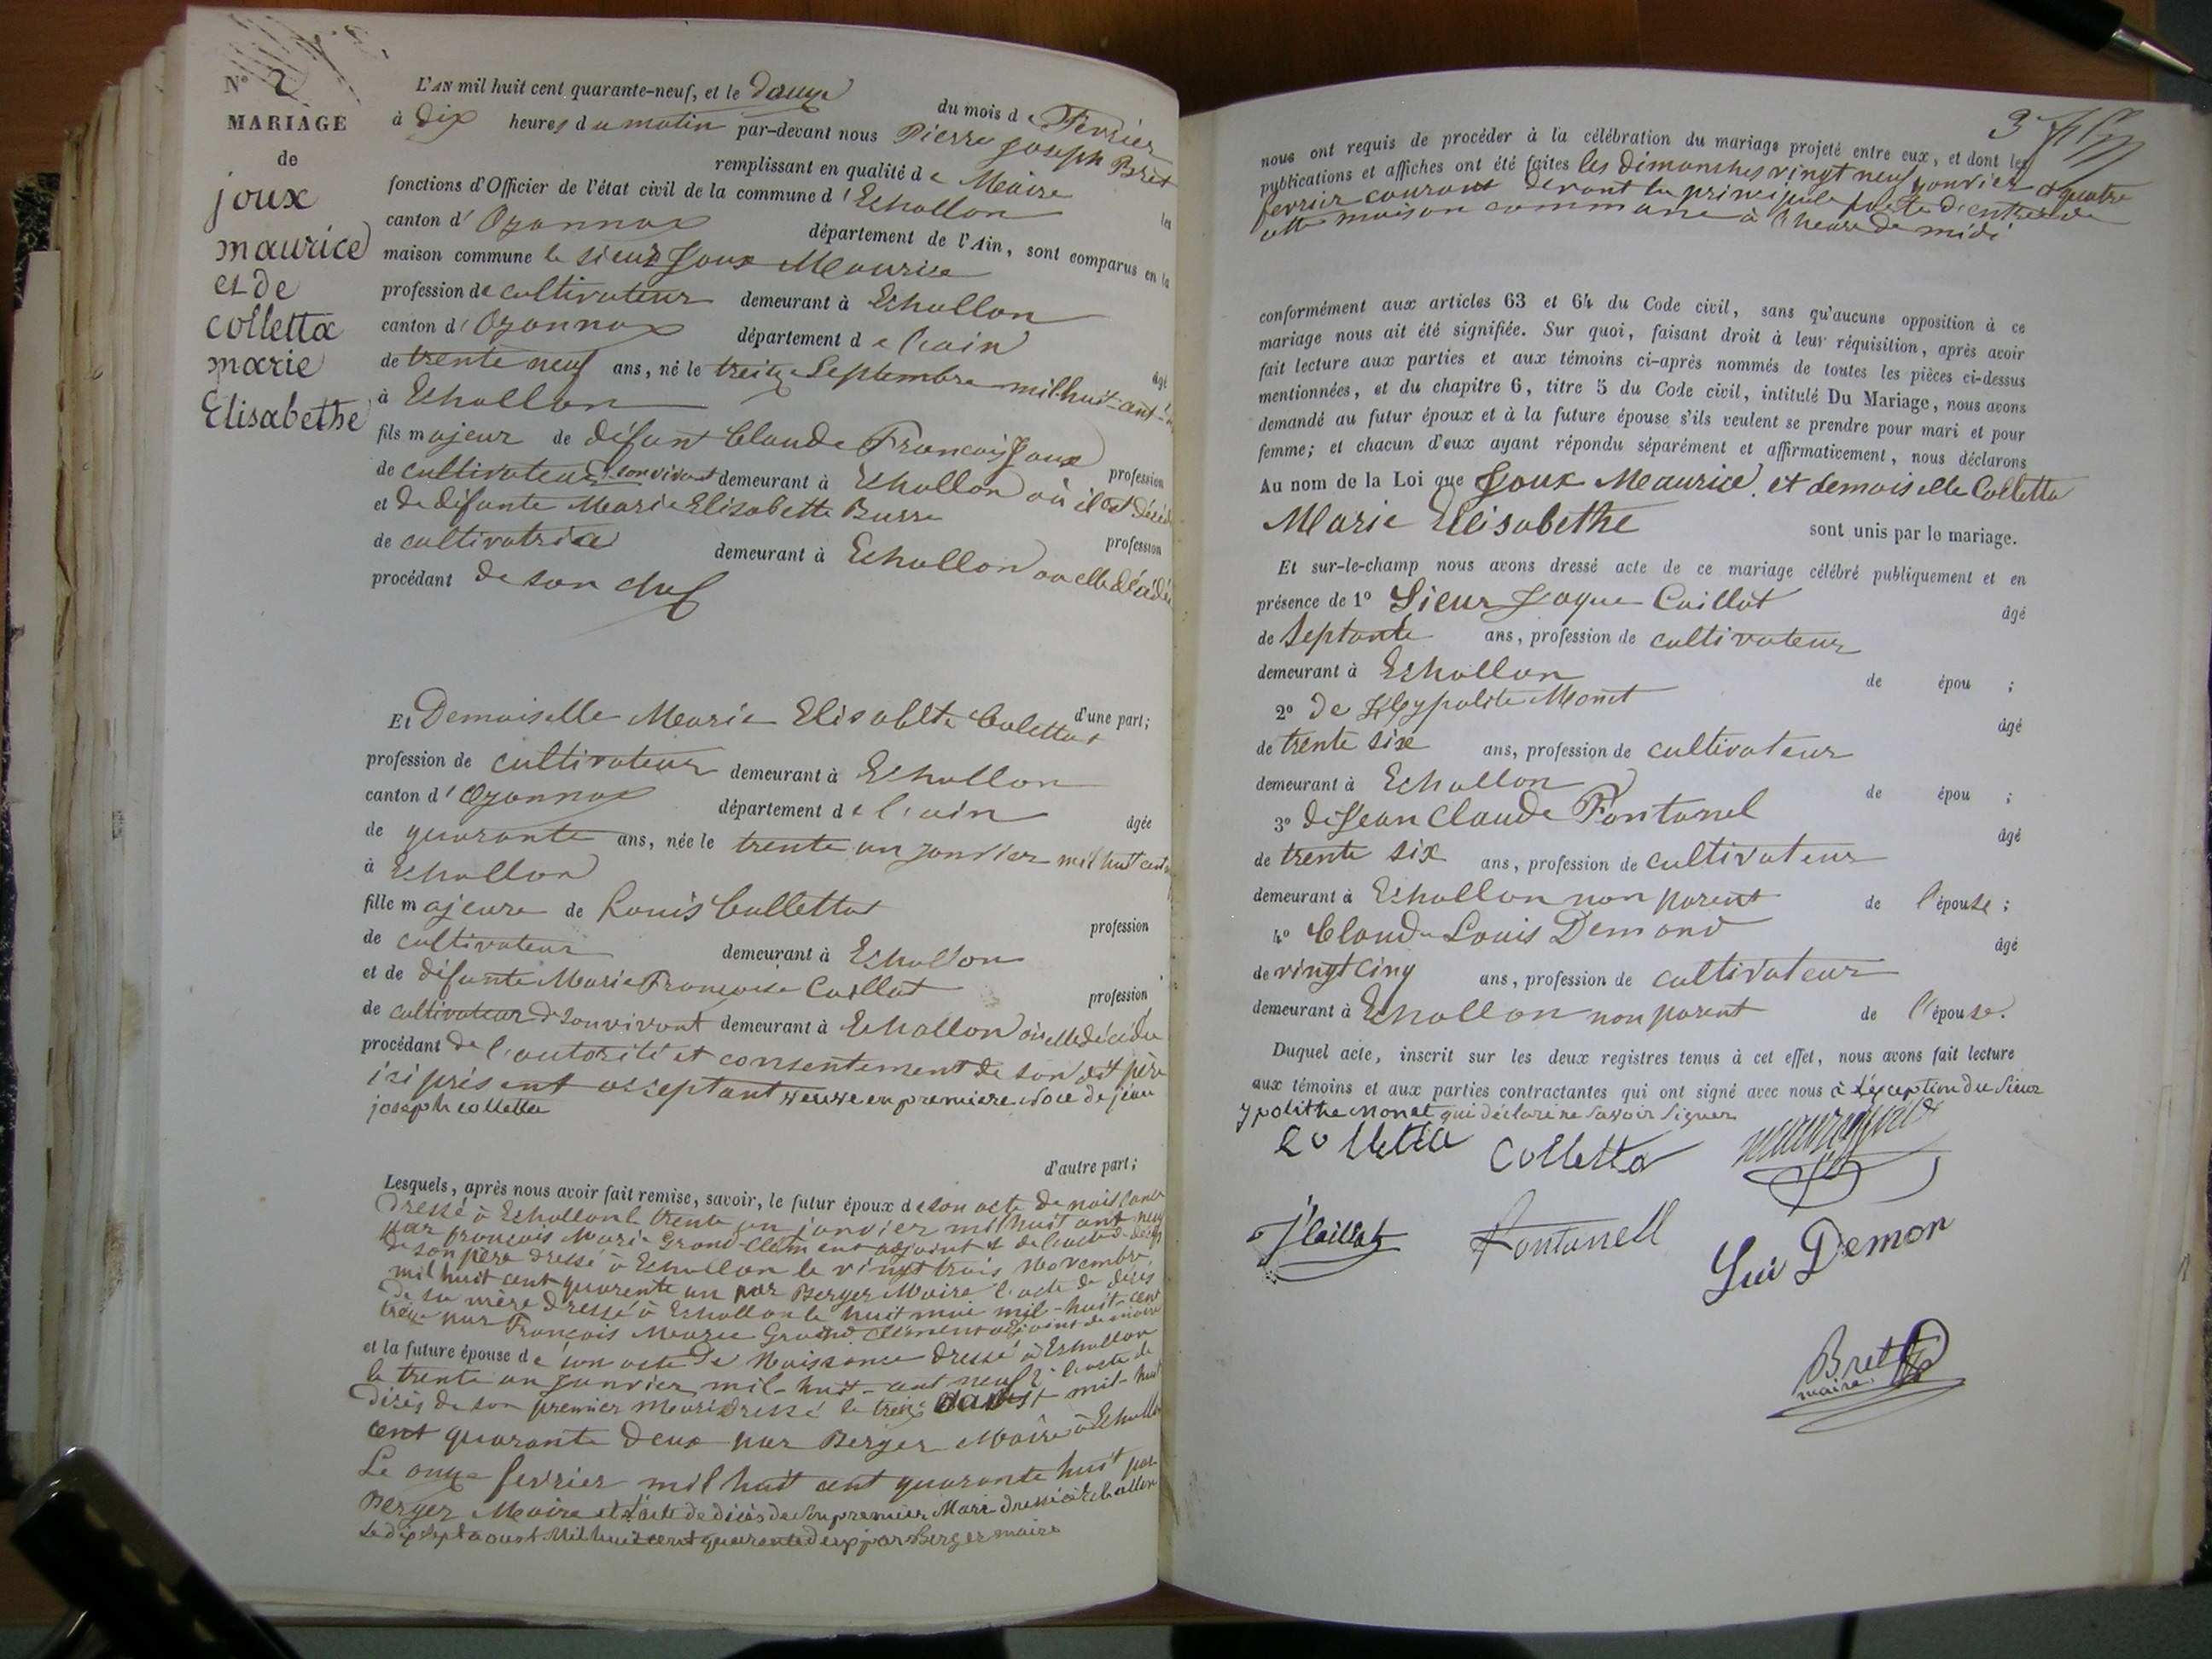 N° 2
MARIAGE
de
joux
maurice
et de
colletta
marie
Elisabethe
L'AN mil huit cent quarante-neuf, et le douze du mois de Fevrier
à dix heures du matin par-devant nous Pierre Joseph Bret
remplissant en qualité de Maire les
fonctions d'Officier de l'état civil de la commune d'Echallon
canton d'Oyonnax département de l'Ain, sont comparus en la
maison commune le sieur Joux Maurice
profession de cultivateur demeurant à Echallon
canton d'Oyonnax département de l'ain
âgé
de trente neuf ans, né le treize Septembre mil huit cent
à Echallon
fils majeur de défunt Claude François Joux profession
de cultivateur d. son vivant demeurant à Echallon où il est décédé
et de défunte Marie Elisabette Burre profession
de cultivatrice demeurant à Echallon ou elle décédé
procédant de son chef
d'une part;
Et Demoiselle Marie Elisablte Colettat
profession de cultivateur demeurant à Echallon
canton d'Oyonnax département de l'ain
âgée
de quarante ans, née le trente un janvier mil huit cent
à Echallon
fille majeure de Louis Collettat profession
de cultivateur demeurant à Echallon
et de défunte Marie Françoise Caillat profession
de cultivateur d son vivant demeurant à Echallon où elle décédée
procédant de l'autorité et consentement de son dit père
ici présent acceptant veuve en premiere noce de jean
joseph colletta
d'autre part;
Lesquels, après nous avoir fait remise, savoir, le futur époux de son acte de naissance
dressé à Echallon le trente un janvier mil huit cent neuf
par françois Marie Grand-Clément adjoint et de l'acte de décès
de son père dressé à Echallon le vingt trois Novembre
mil huit cent quarente un par Berger Maire l'acte de décès
de sa mère dressé à Echallon le huit mai mil-huit-cent
treize par François Marie Grand Clément adjoint de maire
et la future épouse de son acte de Naissance dressé à Echallon
le trente un Janvier mil-huit-cent neuf 2° l'acte de
décès de son premier Mari dressé le treize mil-huit
cent quarante deux par Berger Maire à Echallon
Le onze fevrier mil huit cent quarante huit par
Berger Maire et l'acte de décès de son premier Mari dressé à Echallon
Le dix sept aoust Mil huit cent quarante deux par Berger maire
3
nous ont requis de procéder à la célébration du mariage projeté entre eux, et dont les
publications et affiches ont été faites les dimanches vingt neuf janvier et quatre
fevrier courant devant la principale porte d'entrée de
cette maison commune à l'heure de midi
conformément aux articles 63 et 64 du Code civil, sans qu'aucune opposition à ce
mariage nous ait été signifiée. Sur quoi, faisant droit à leur réquisition, après avoir
fait lecture aux parties et aux témoins ci-après nommés de toutes les pièces ci-dessus
mentionnées, et du chapitre 6, titre 5 du Code civil, intitulé Du Mariage, nous avons
demandé au futur époux et à la future épouse s'ils veulent se prendre pour mari et pour
femme; et chacun d'eux ayant répondu séparément et affirmativement, nous déclarons
Au nom de la Loi que Joux Maurice et demoiselle Colletta
Marie Elisabethe sont unis par le mariage.
Et sur-le-champ nous avons dressé acte de ce mariage célébré publiquement et en
présence de 1° Sieur Jaque Caillat âgé
de Septante ans, profession de cultivateur
demeurant à Echallon de épou ;
2° de Hypolite Monet âgé
de trente six ans, profession de cultivateur
demeurant à Echallon de épou ;
3° de Jean Claude Fontanel âgé
de trente six ans, profession de cultivateur
demeurant à Echallon non parent de l'épouse ;
4° Claude Louis Demond âgé
de vingt cinq ans, profession de cultivateur
demeurant à Echallon non parent de l'épouse.
Duquel acte, inscrit sur les deux registres tenus à cet effet, nous avons fait lecture
aux témoins et aux parties contractantes qui ont signé avec nous à l'éception du Sieur
ypolithe Monet qui déclare ne savoir signer
Colletta Colletta
J Caillat Fontanell Lui Demon
Bret
maire